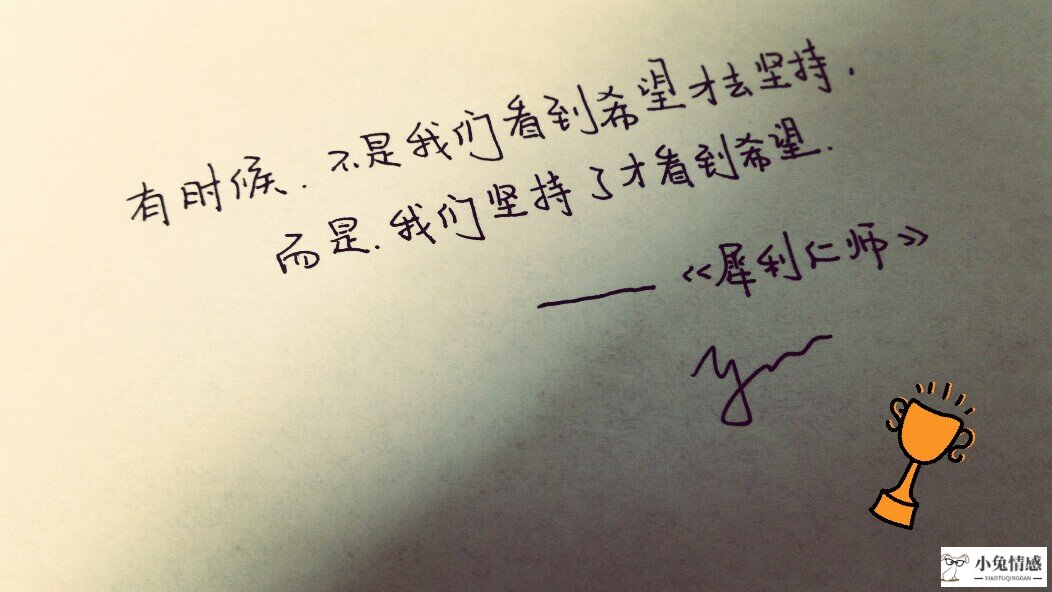 有时候.不是我们看到希望才去坚持.
而是.我们坚持了才看到希望.
——《犀利仁师》
小兔情感
XIAOTUQINGGAN